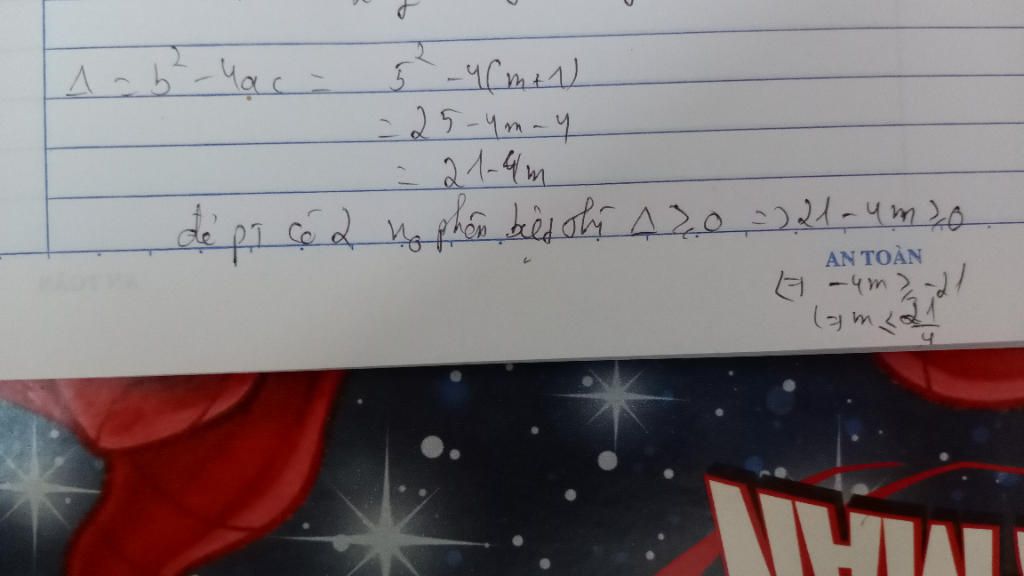 Δ = b² - 4ac = 5² - 4(m+1)
= 25 - 4m - 4
= 21 - 4m
để pt có 2 no phân biệt thì Δ ≥ 0 => 21 - 4m ≥ 0
AN TOÀN
<=> -4m ≥ -21
<=> m ≤ 21/4
MAN